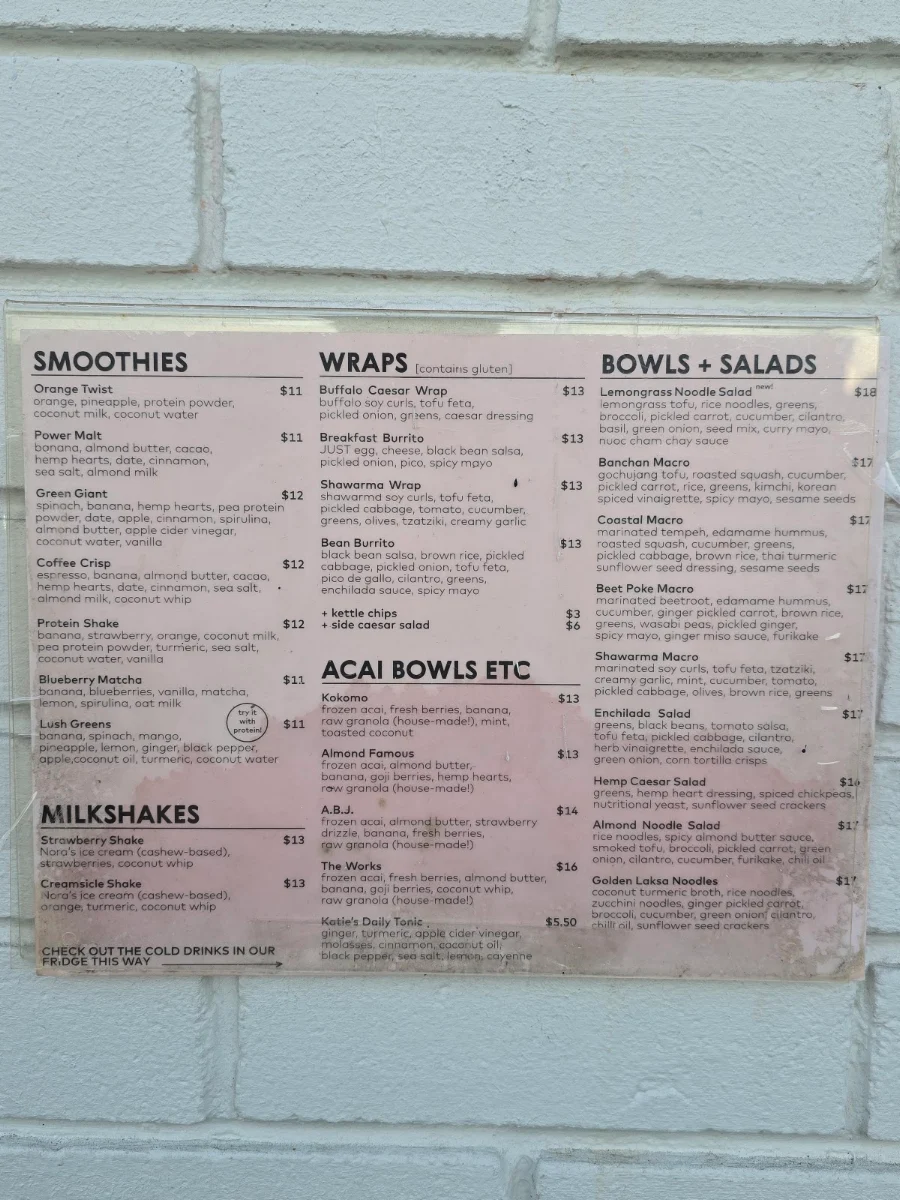 SMOOTHIES
Orange Twist $11
orange, pineapple, protein powder,
coconut milk, coconut water
Power Malt $11
banana, almond butter, cacao,
hemp hearts, date, cinnamon,
sea salt, almond milk
Green Giant $12
spinach, banana, hemp hearts, pea protein
powder, date, apple, cinnamon, spirulina,
almond butter, apple cider vinegar,
coconut water, vanilla
Coffee Crisp $12
espresso, banana, almond butter, cacao,
hemp hearts, date, cinnamon, sea salt,
almond milk, coconut whip
Protein Shake $12
banana, strawberry, orange, coconut milk,
pea protein powder, turmeric, sea salt,
coconut water, vanilla
Blueberry Matcha $11
banana, blueberries, vanilla, matcha,
lemon, spirulina, oat milk
try it
with
protein!
Lush Greens $11
banana, spinach, mango,
pineapple, lemon, ginger, black pepper,
apple,coconut oil, turmeric, coconut water
MILKSHAKES
Strawberry Shake $13
Nora's ice cream (cashew-based),
strawberries, coconut whip
Creamsicle Shake $13
Nora's ice cream (cashew-based),
orange, turmeric, coconut whip
CHECK OUT THE COLD DRINKS IN OUR
FRIDGE THIS WAY
WRAPS [contains gluten]
Buffalo Caesar Wrap $13
buffalo soy curls, tofu feta,
pickled onion, greens, caesar dressing
Breakfast Burrito $13
JUST egg, cheese, black bean salsa,
pickled onion, pico, spicy mayo
Shawarma Wrap $13
shawarma soy curls, tofu feta,
pickled cabbage, tomato, cucumber,
greens, olives, tzatziki, creamy garlic
Bean Burrito $13
black bean salsa, brown rice, pickled
cabbage, pickled onion, tofu feta,
pico de gallo, cilantro, greens,
enchilada sauce, spicy mayo
+ kettle chips $3
+ side caesar salad $6
ACAI BOWLS ETC
Kokomo $13
frozen acai, fresh berries, banana,
raw granola (house-made!), mint,
toasted coconut
Almond Famous $13
frozen acai, almond butter,
banana, goji berries, hemp hearts,
raw granola (house-made!)
A.B.J. $14
frozen acai, almond butter, strawberry
drizzle, banana, fresh berries,
raw granola (house-made!)
The Works $16
frozen acai, fresh berries, almond butter,
banana, goji berries, coconut whip,
raw granola (house-made!)
Katie's Daily Tonic $5.50
ginger, turmeric, apple cider vinegar,
molasses, cinnamon, coconut oil,
black pepper, sea salt, lemon, cayenne
BOWLS + SALADS
Lemongrass Noodle Salad new! $18
lemongrass tofu, rice noodles, greens,
broccoli, pickled carrot, cucumber, cilantro,
basil, green onion, seed mix, curry mayo,
nuoc cham chay sauce
Banchan Macro $17
gochujang tofu, roasted squash, cucumber,
pickled carrot, rice, greens, kimchi, korean
spiced vinaigrette, spicy mayo, sesame seeds
Coastal Macro $17
marinated tempeh, edamame hummus,
roasted squash, cucumber, greens,
pickled cabbage, brown rice, thai turmeric
sunflower seed dressing, sesame seeds
Beet Poke Macro $17
marinated beetroot, edamame hummus,
cucumber, ginger pickled carrot, brown rice,
greens, wasabi peas, pickled ginger,
spicy mayo, ginger miso sauce, furikake
Shawarma Macro $17
marinated soy curls, tofu feta, tzatziki,
creamy garlic, mint, cucumber, tomato,
pickled cabbage, olives, brown rice, greens
Enchilada Salad $17
greens, black beans, tomato salsa,
tofu feta, pickled cabbage, cilantro,
herb vinaigrette, enchilada sauce,
green onion, corn tortilla crisps
Hemp Caesar Salad
greens, hemp heart dressing, spiced chickpeas,
nutritional yeast, sunflower seed crackers
Almond Noodle Salad $17
rice noodles, spicy almond butter sauce,
smoked tofu, broccoli, pickled carrot, green
onion, cilantro, cucumber, furikake, chili oil
Golden Laksa Noodles $17
coconut turmeric broth, rice noodles,
zucchini noodles, ginger pickled carrot,
broccoli, cucumber, green onion, cilantro,
chilli oil, sunflower seed crackers